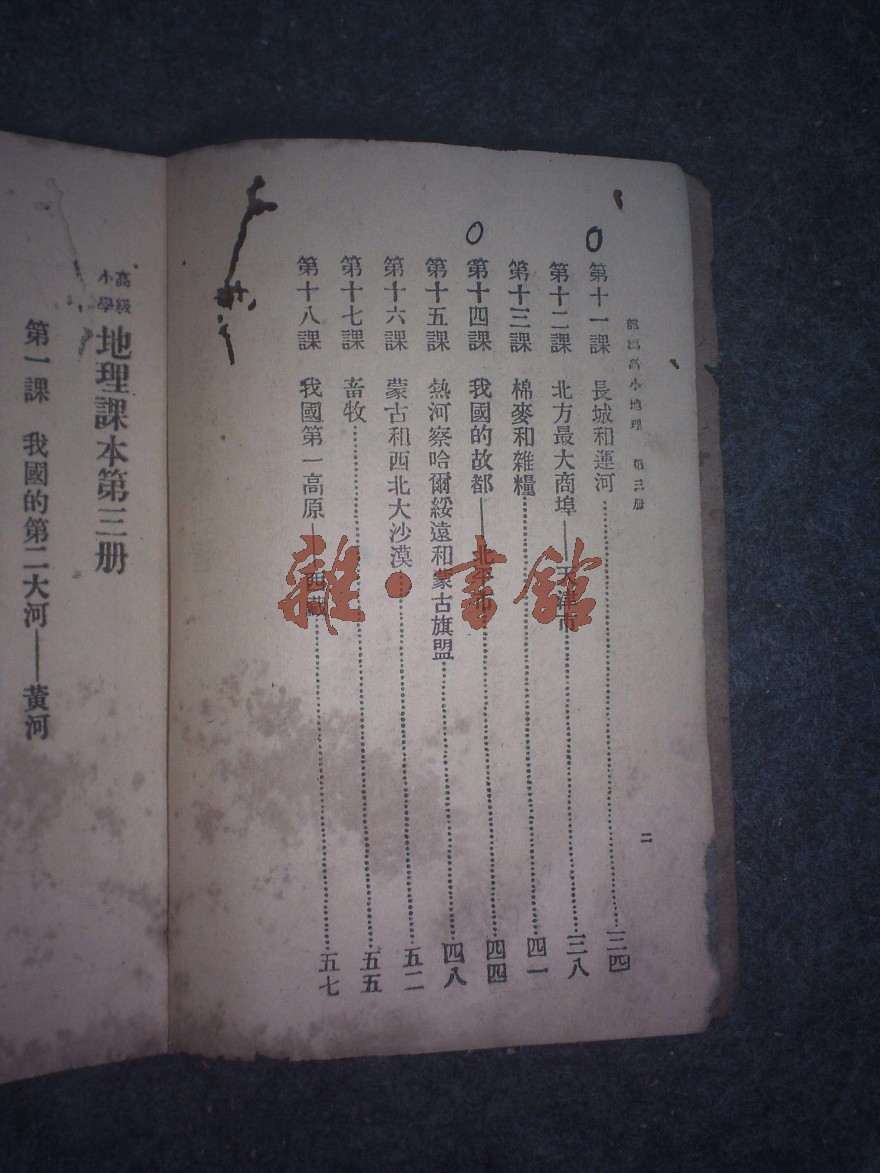 高小地理 第三册
第十一課 長城和運河 三四
第十二課 北方最大商埠——天津市 三八
第十三課 棉麥和雜糧 四一
第十四課 我國的故都——北平市 四四
第十五課 熱河察哈爾綏遠和蒙古旗盟 四八
第十六課 蒙古和西北大沙漠 五二
第十七課 畜牧 五五
第十八課 我國第一高原——西藏 五七
二
高級小學 地理課本第三册
第一課 我國的第二大河——黃河
雜·書館